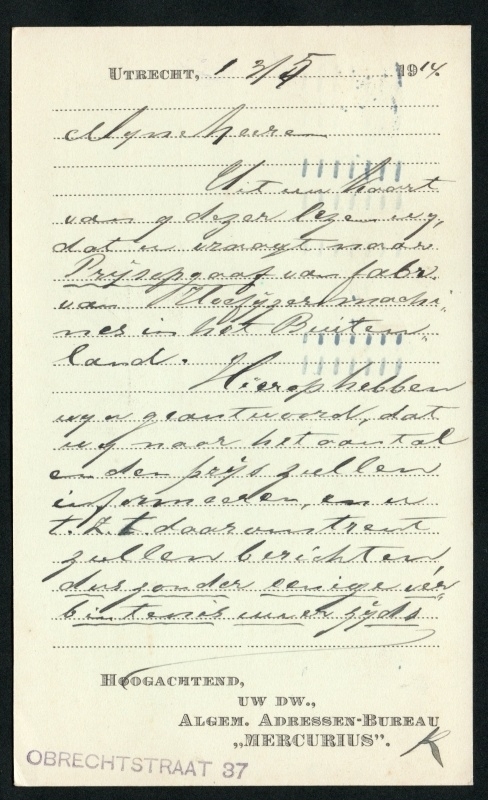 UTRECHT, 12/5 1914.
Mijne heeren
Uit uw kaart
van 9 dezer lezen wij,
dat u vraagt naar
Prijsopgaaf van fabr.
van Hoefijzermachi„
nes in het Buiten„
land.
Hierop hebben
wij u geantwoord, dat
wij naar het aantal
en den prijs zullen
informeeren, en u
t.z.t. daaromtrent
zullen berichten
dus zonder eenige ver„
bintenis uwerzijds
HOOGACHTEND,
UW DW.,
ALGEM. ADRESSEN-BUREAU
„MERCURIUS”.
OBRECHTSTRAAT 37